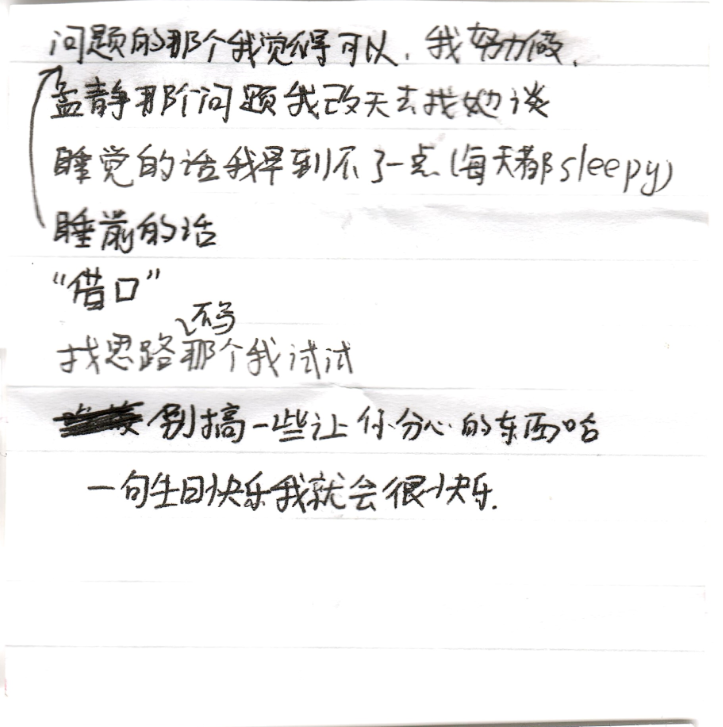 问题的那个我觉得可以，我努力做.
孟静那个问题我改天去找她谈
睡觉的话我早到不了一点(每天都sleepy)
睡前的话
“借口”
不写
找思路那个我试试
别搞一些让你分心的东西哈
一句生日快乐我就会很快乐.